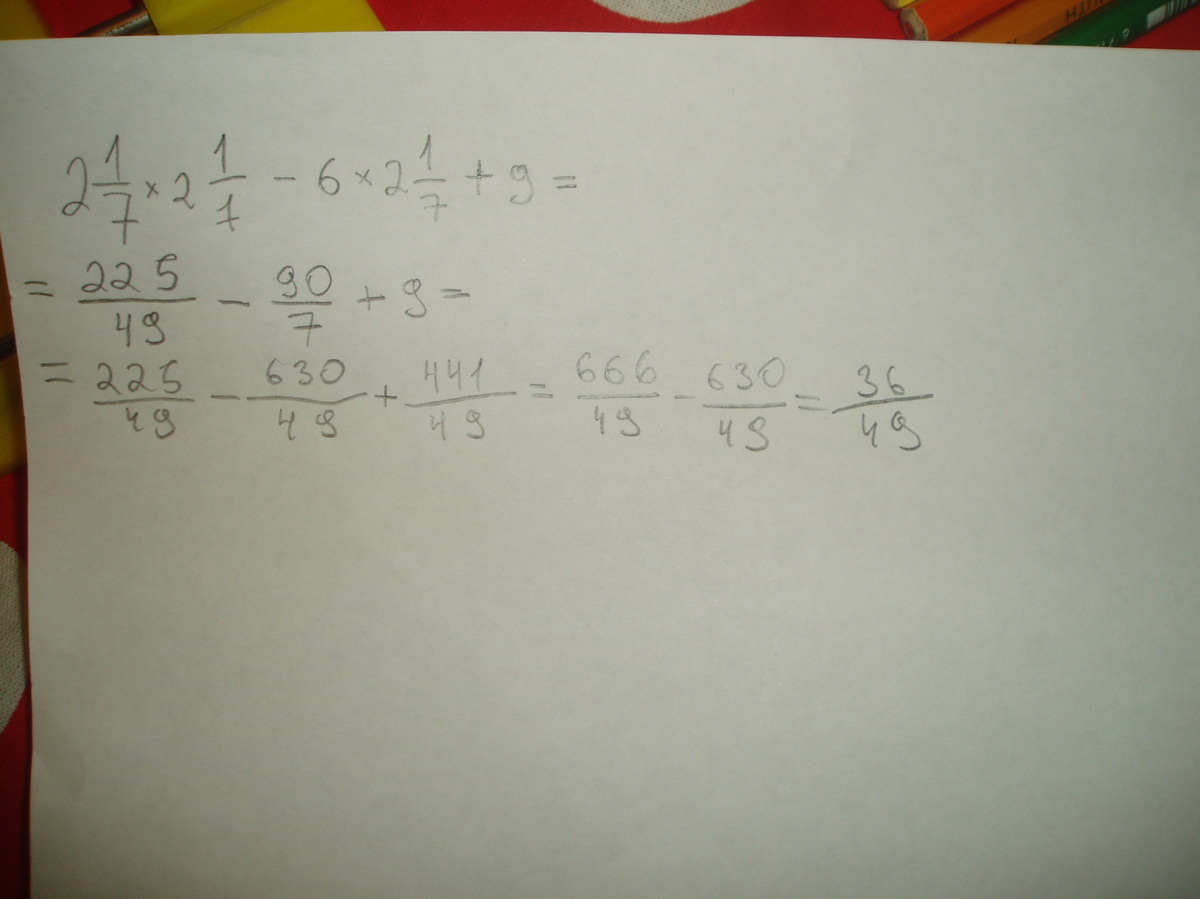 2 1/7 × 2 1/7 - 6 × 2 1/7 + 9 =
= 225/49 - 90/7 + 9 =
= 225/49 - 630/49 + 441/49 = 666/49 - 630/49 = 36/49